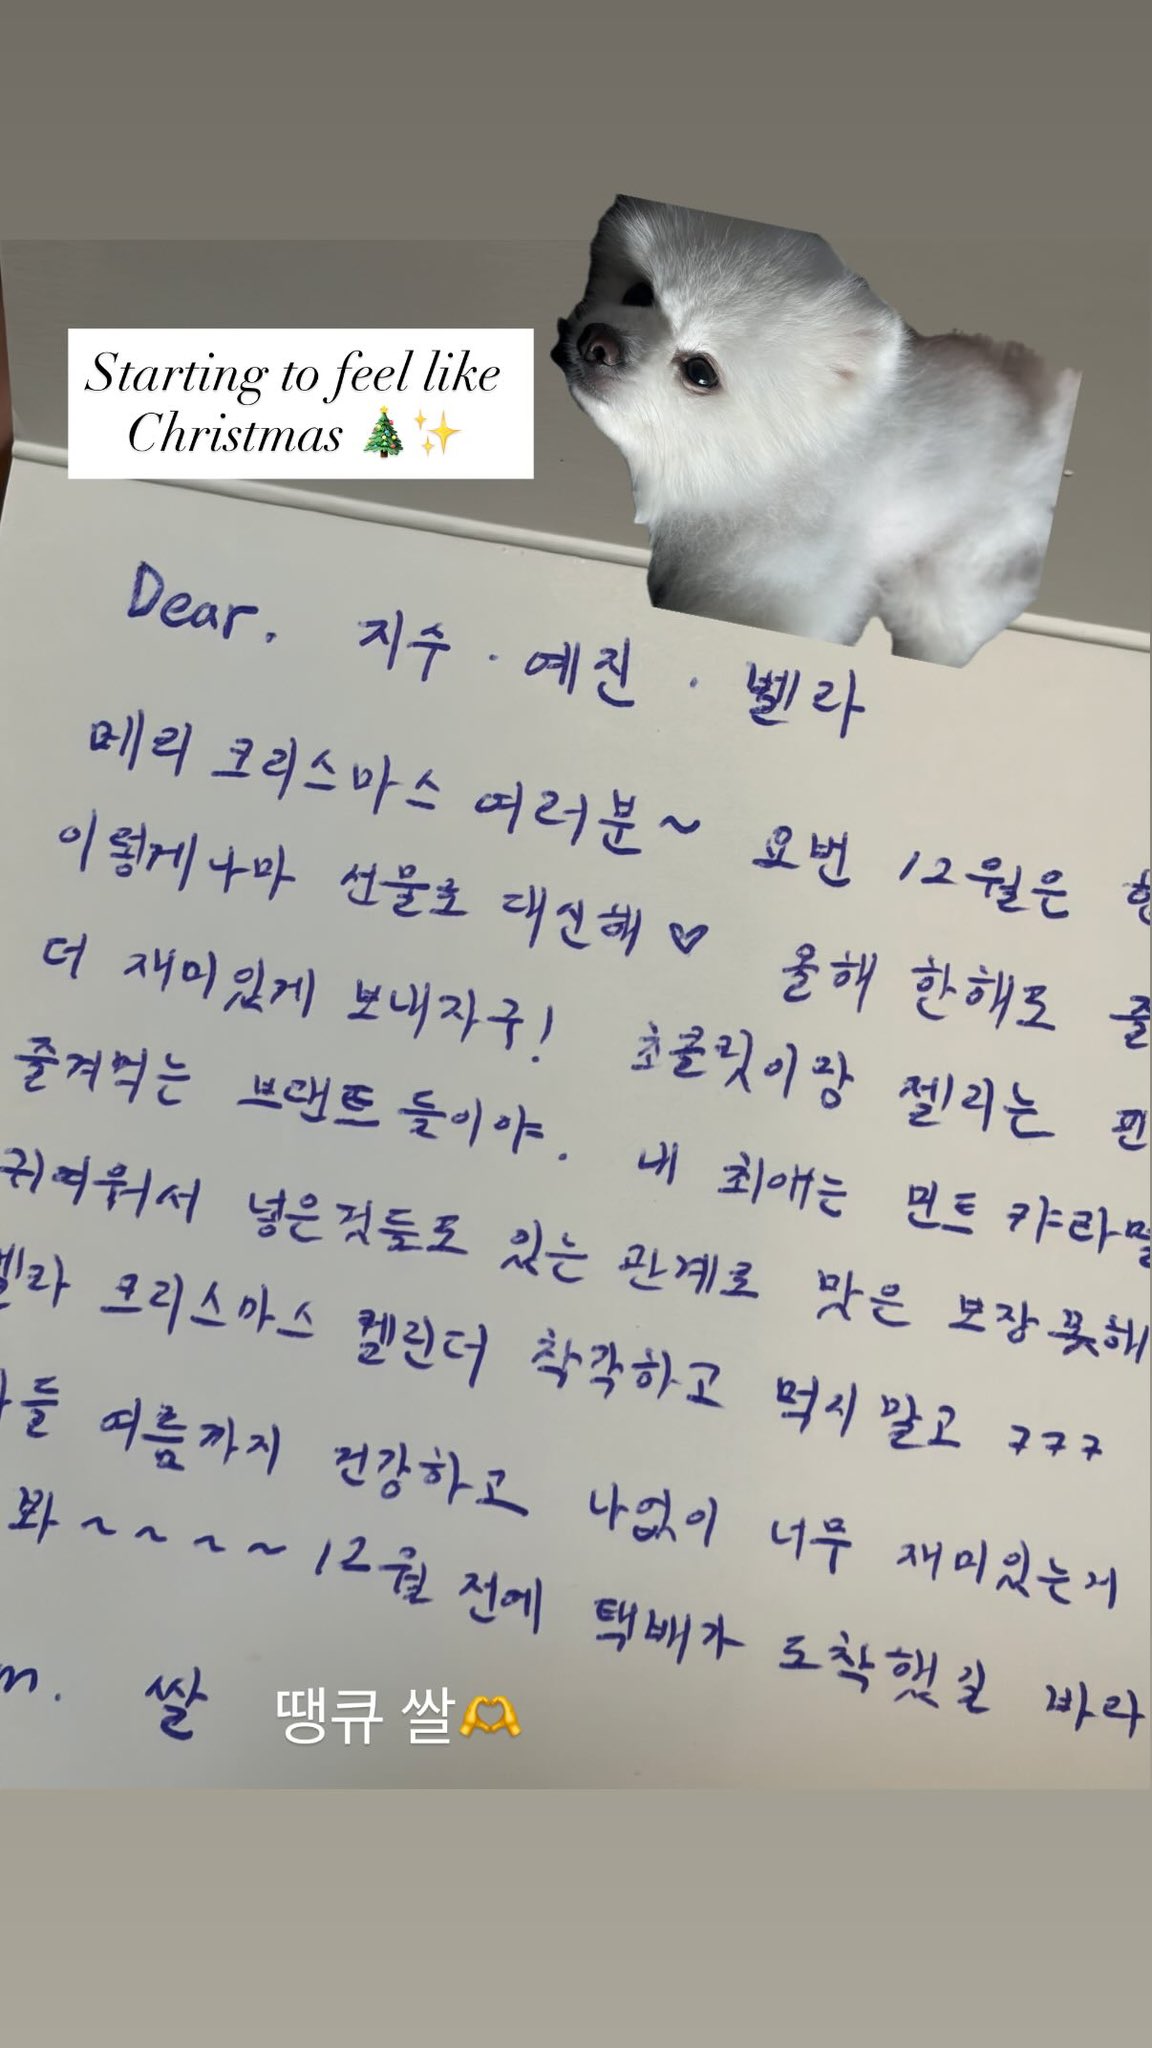 Starting to feel like
Christmas 🎄✨
Dear. 지수 · 예진 · 벨라
메리 크리스마스 여러분~ 요번 12월은
이렇게나마 선물로 대신해 ♡ 올해 한해도
더 재미있게 보내자구! 초콜릿이랑 젤리는
즐겨먹는 브랜트들이야. 내 최애는 민트 캬라멜
귀여워서 넣은것들도 있는 관계로 맛은 보장 못해
벨라 크리스마스 켈린더 착각하고 먹지 말고 ㅋㅋㅋ
들 여름까지 건강하고 나없이 너무 재미있는거
봐~~~~ 12월 전에 택배가 도착했길 바라
m. 쌀
땡큐 쌀🫶